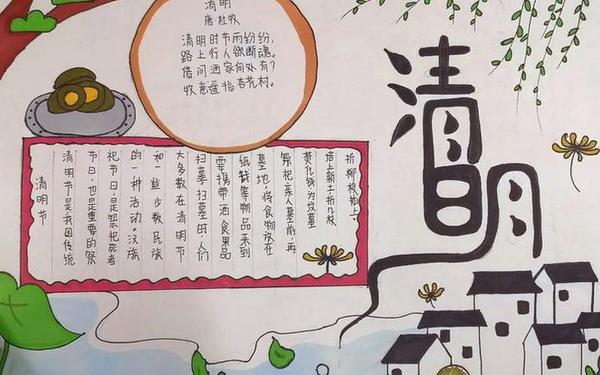 清明
清明
唐杜牧
清明时节雨纷纷,
路上行人欲断魂。
借问洒家何处有?
牧意遥指杏花村。
清明节
清明节是我国传统
节日,也是重要的祭
祀节日是祭祀死者
的一种活动。汉族
和一些少数民族
大多数在清明节
扫墓扫墓时人们
要携带洒食果品
纸钱等物品来到
墓地,将食物放在
祭祀亲人墓前,再
焚化钱为坟墓
培上新土折几枝
折柳枝插上。